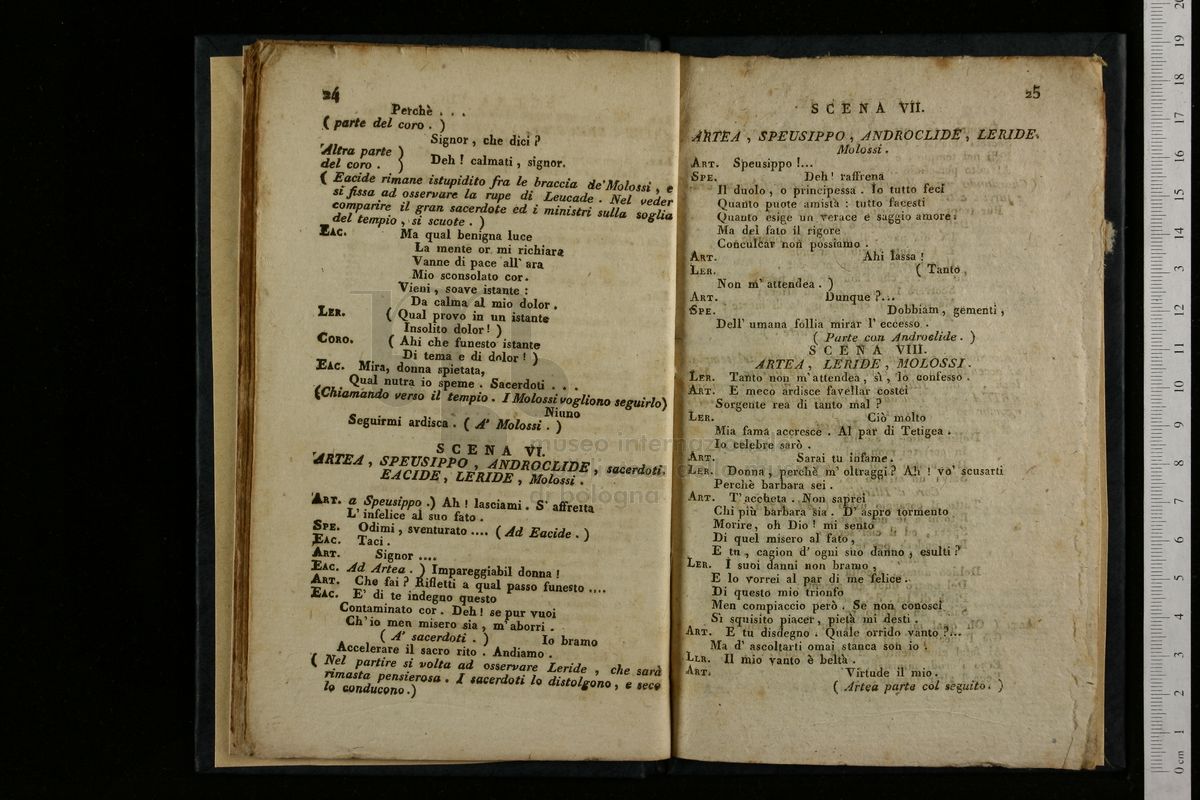 24
Perchè . . .
( parte del coro . )
Signor , che dici ?
Altra parte )
del coro . ) Deh ! calmati , signor.
( Eacide rimane istupidito fra le braccia de' Molossi , e
si fissa ad osservare la rupe di Leucade . Nel veder
comparire il gran sacerdote ed i ministri sulla soglia
del tempio , si scuote . )
EAC. Ma qual benigna luce
La mente or mi richiara
Vanne di pace all' ara
Mio sconsolato cor .
Vieni , soave istante :
Da calma al mio dolor .
LER. ( Qual provo in un istante
Insolito dolor ! )
CORO. ( Ahi che funesto istante
Di tema e di dolor ! )
EAC. Mira, donna spietata,
Qual nutra io speme . Sacerdoti . . .
(Chiamando verso il tempio . I Molossi vogliono seguirlo)
Niuno
Seguirmi ardisca . ( A' Molossi . )
SCENA VI.
ARTEA , SPEUSIPPO , ANDROCLIDE , sacerdoti.
EACIDE , LERIDE , Molossi .
ART. a Speusippo .) Ah ! lasciami . S' affretta
L' infelice al suo fato .
SPE. Odimi , sventurato .... ( Ad Eacide . )
EAC. Taci .
ART. Signor ....
EAC. Ad Artea . ) Impareggiabil donna !
ART. Che fai ? Rifletti a qual passo funesto ....
EAC. E' di te indegno questo
Contaminato cor . Deh ! se pur vuoi
Ch' io men misero sia , m' aborri .
( A' sacerdoti . ) Io bramo
Accelerare il sacro rito . Andiamo .
( Nel partire si volta ad osservare Leride , che sarà
rimasta pensierosa . I sacerdoti lo distolgono , e seco
lo conducono .)
25
SCENA VII.
ARTEA , SPEUSIPPO , ANDROCLIDE , LERIDE.
Molossi .
ART. Speusippo !...
SPE. Deh ! raffrena
Il duolo , o principessa . Io tutto feci
Quanto puote amistà : tutto facesti
Quanto esige un verace e saggio amore :
Ma del fato il rigore
Conculcar non possiamo .
ART. Ahi lassa !
LER. ( Tanto
Non m' attendea . )
ART. Dunque ?...
SPE. Dobbiam , gementi ,
Dell' umana follia mirar l' eccesso .
( Parte con Androclide . )
SCENA VIII.
ARTEA , LERIDE , MOLOSSI .
LER. Tanto non m' attendea , sì , lo confesso .
ART. E meco ardisce favellar costei
Sorgente rea di tanto mal ?
LER. Ciò molto
Mia fama accresce . Al par di Tetigea .
Io celebre sarò .
ART. Sarai tu infame .
LER. Donna , perchè m' oltraggi ? Ah ! vo' scusarti
Perchè barbara sei .
ART. T' accheta . Non saprei
Chi più barbara sia . D' aspro tormento
Morire , oh Dio ! mi sento
Di quel misero al fato ,
E tu , cagion d' ogni suo danno , esulti ?
LER. I suoi danni non bramo ,
E lo vorrei al par di me felice .
Di questo mio trionfo
Men compiaccio però . Se non conosci
Sì squisito piacer , pietà mi desti .
ART. E tu disdegno . Quale orrido vanto ?...
Ma d' ascoltarti omai stanca son io .
LER. Il mio vanto è beltà .
ART. Virtude il mio .
( Artea parte col seguito . )
museo internaz
di bologna
0 cm 1 2 3 4 5 6 7 8 9 10 11 12 13 14 15 16 17 18 19 20